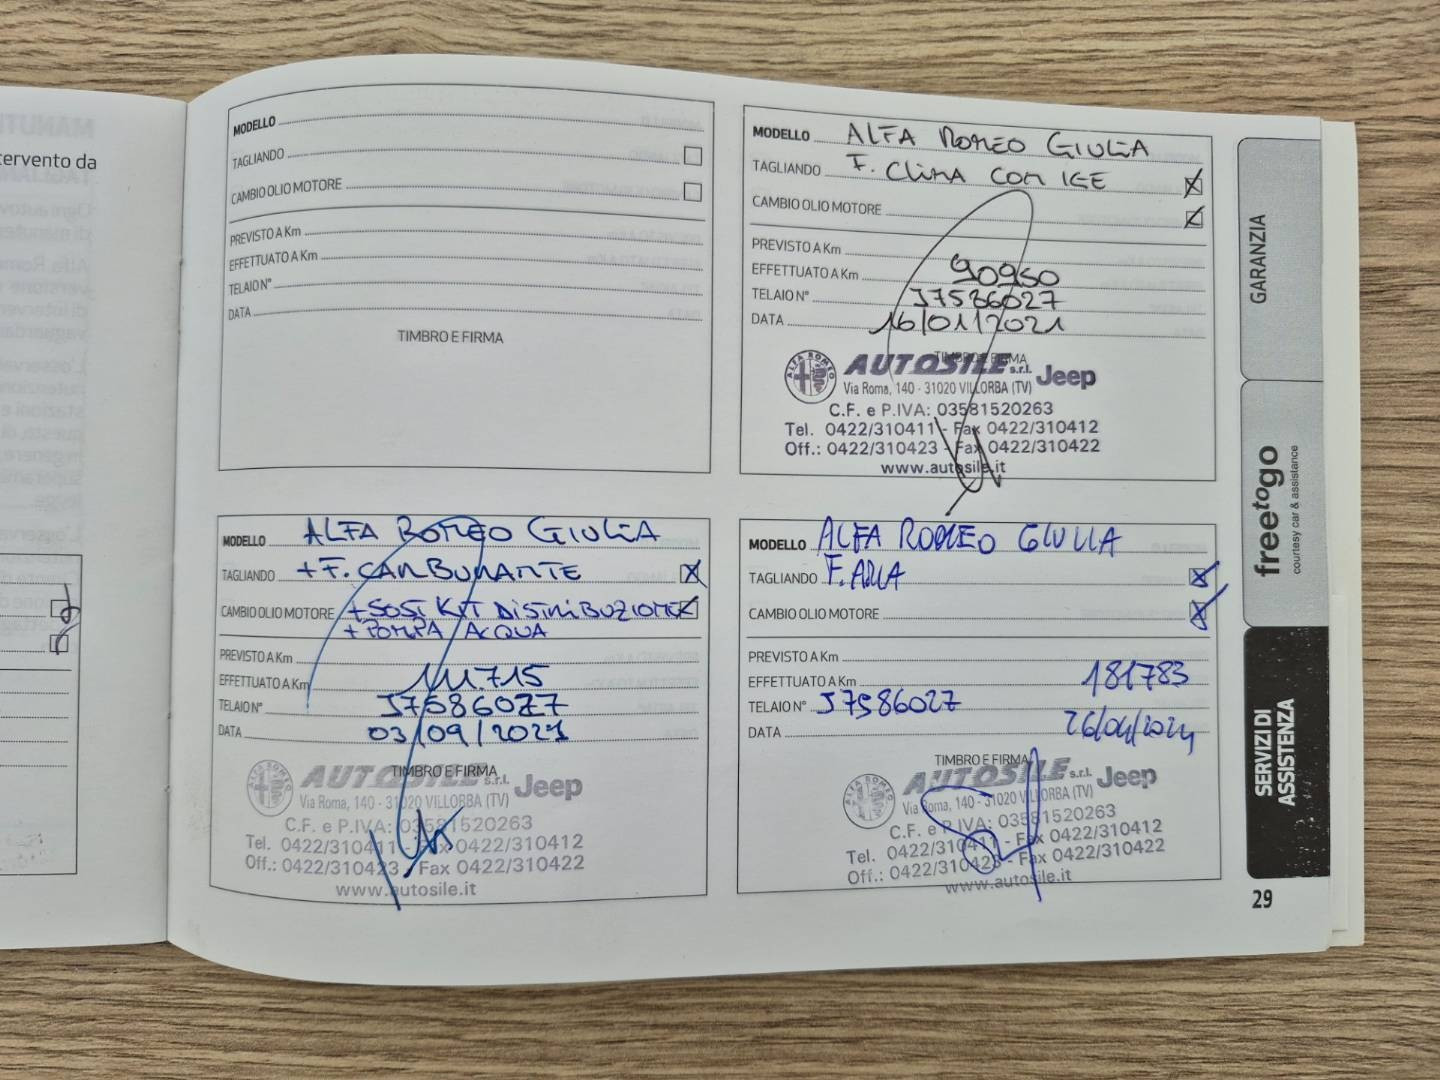 tervento da
MODELLO
TAGLIANDO
CAMBIO OLIO MOTORE
PREVISTO A Km
EFFETTUATO A Km
TELAIO N°
DATA
TIMBRO E FIRMA
MODELLO ALFA ROMEO GIULIA
TAGLIANDO F. CLIMA CON IGE
CAMBIO OLIO MOTORE
PREVISTO A Km
EFFETTUATO A Km 90950
TELAIO N° J7586027
DATA 16/01/2021
TIMBRO E FIRMA
ALFA ROMEO
AUTOSILE s.r.l. Jeep
Via Roma, 140 - 31020 VILLORBA (TV)
C.F. e P.IVA: 03581520263
Tel. 0422/310411 - Fax 0422/310412
Off.: 0422/310423 - Fax 0422/310422
www.autosile.it
MODELLO ALFA ROMEO GIULIA
TAGLIANDO + F. CARBURANTE
CAMBIO OLIO MOTORE + SOST KIT DISTRIBUZIONE
+ POMPA ACQUA
PREVISTO A Km
EFFETTUATO A Km 111.715
TELAIO N° J7586027
DATA 03/09/2021
TIMBRO E FIRMA
AUTOSILE s.r.l. Jeep
Via Roma, 140 - 31020 VILLORBA (TV)
C.F. e P.IVA: 03581520263
Tel. 0422/310411 - Fax 0422/310412
Off.: 0422/310423 - Fax 0422/310422
www.autosile.it
MODELLO ALFA ROMEO GIULIA
TAGLIANDO F. ARIA
CAMBIO OLIO MOTORE
PREVISTO A Km
EFFETTUATO A Km 181783
TELAIO N° J7586027
DATA 26/04/2024
TIMBRO E FIRMA
AUTOSILE s.r.l. Jeep
Via Roma, 140 - 31020 VILLORBA (TV)
C.F. e P.IVA: 03581520263
Tel. 0422/310411 - Fax 0422/310412
Off.: 0422/310423 - Fax 0422/310422
www.autosile.it
GARANZIA
freetogo
courtesy car & assistance
SERVIZI DI
ASSISTENZA
29